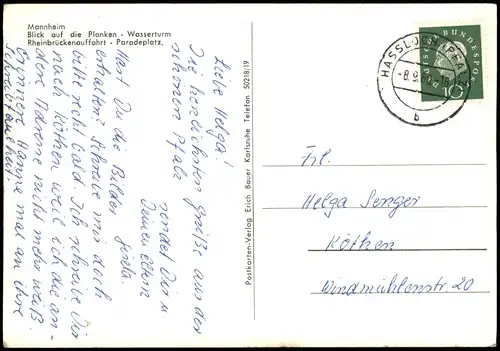 Mannheim
Blick auf die Planken - Wasserturm
Rheinbrückenauffahrt - Paradeplatz,
Liebe Helga!
Die herzlichsten Grüße aus der
schönen Pfalz
sendet Dir u.
Deinen Eltern
Gisela.
Hast Du die Bilder
erhalten? Schreibe mir doch
bitte recht bald. Ich schreibe Dir
nach Köthen weil ich die an-
dere Adresse nicht mehr weiß.
Erinnere Hanne mal an ihre
Schreibfaulheit.
Postkarten-Verlag Erich Bauer Karlsruhe Telefon 50218/19
HASSLOCH (PFALZ)
b
DEUTSCHE BUNDESPOST
10
Frl.
Helga Senger
Köthen
Windmühlenstr. 20